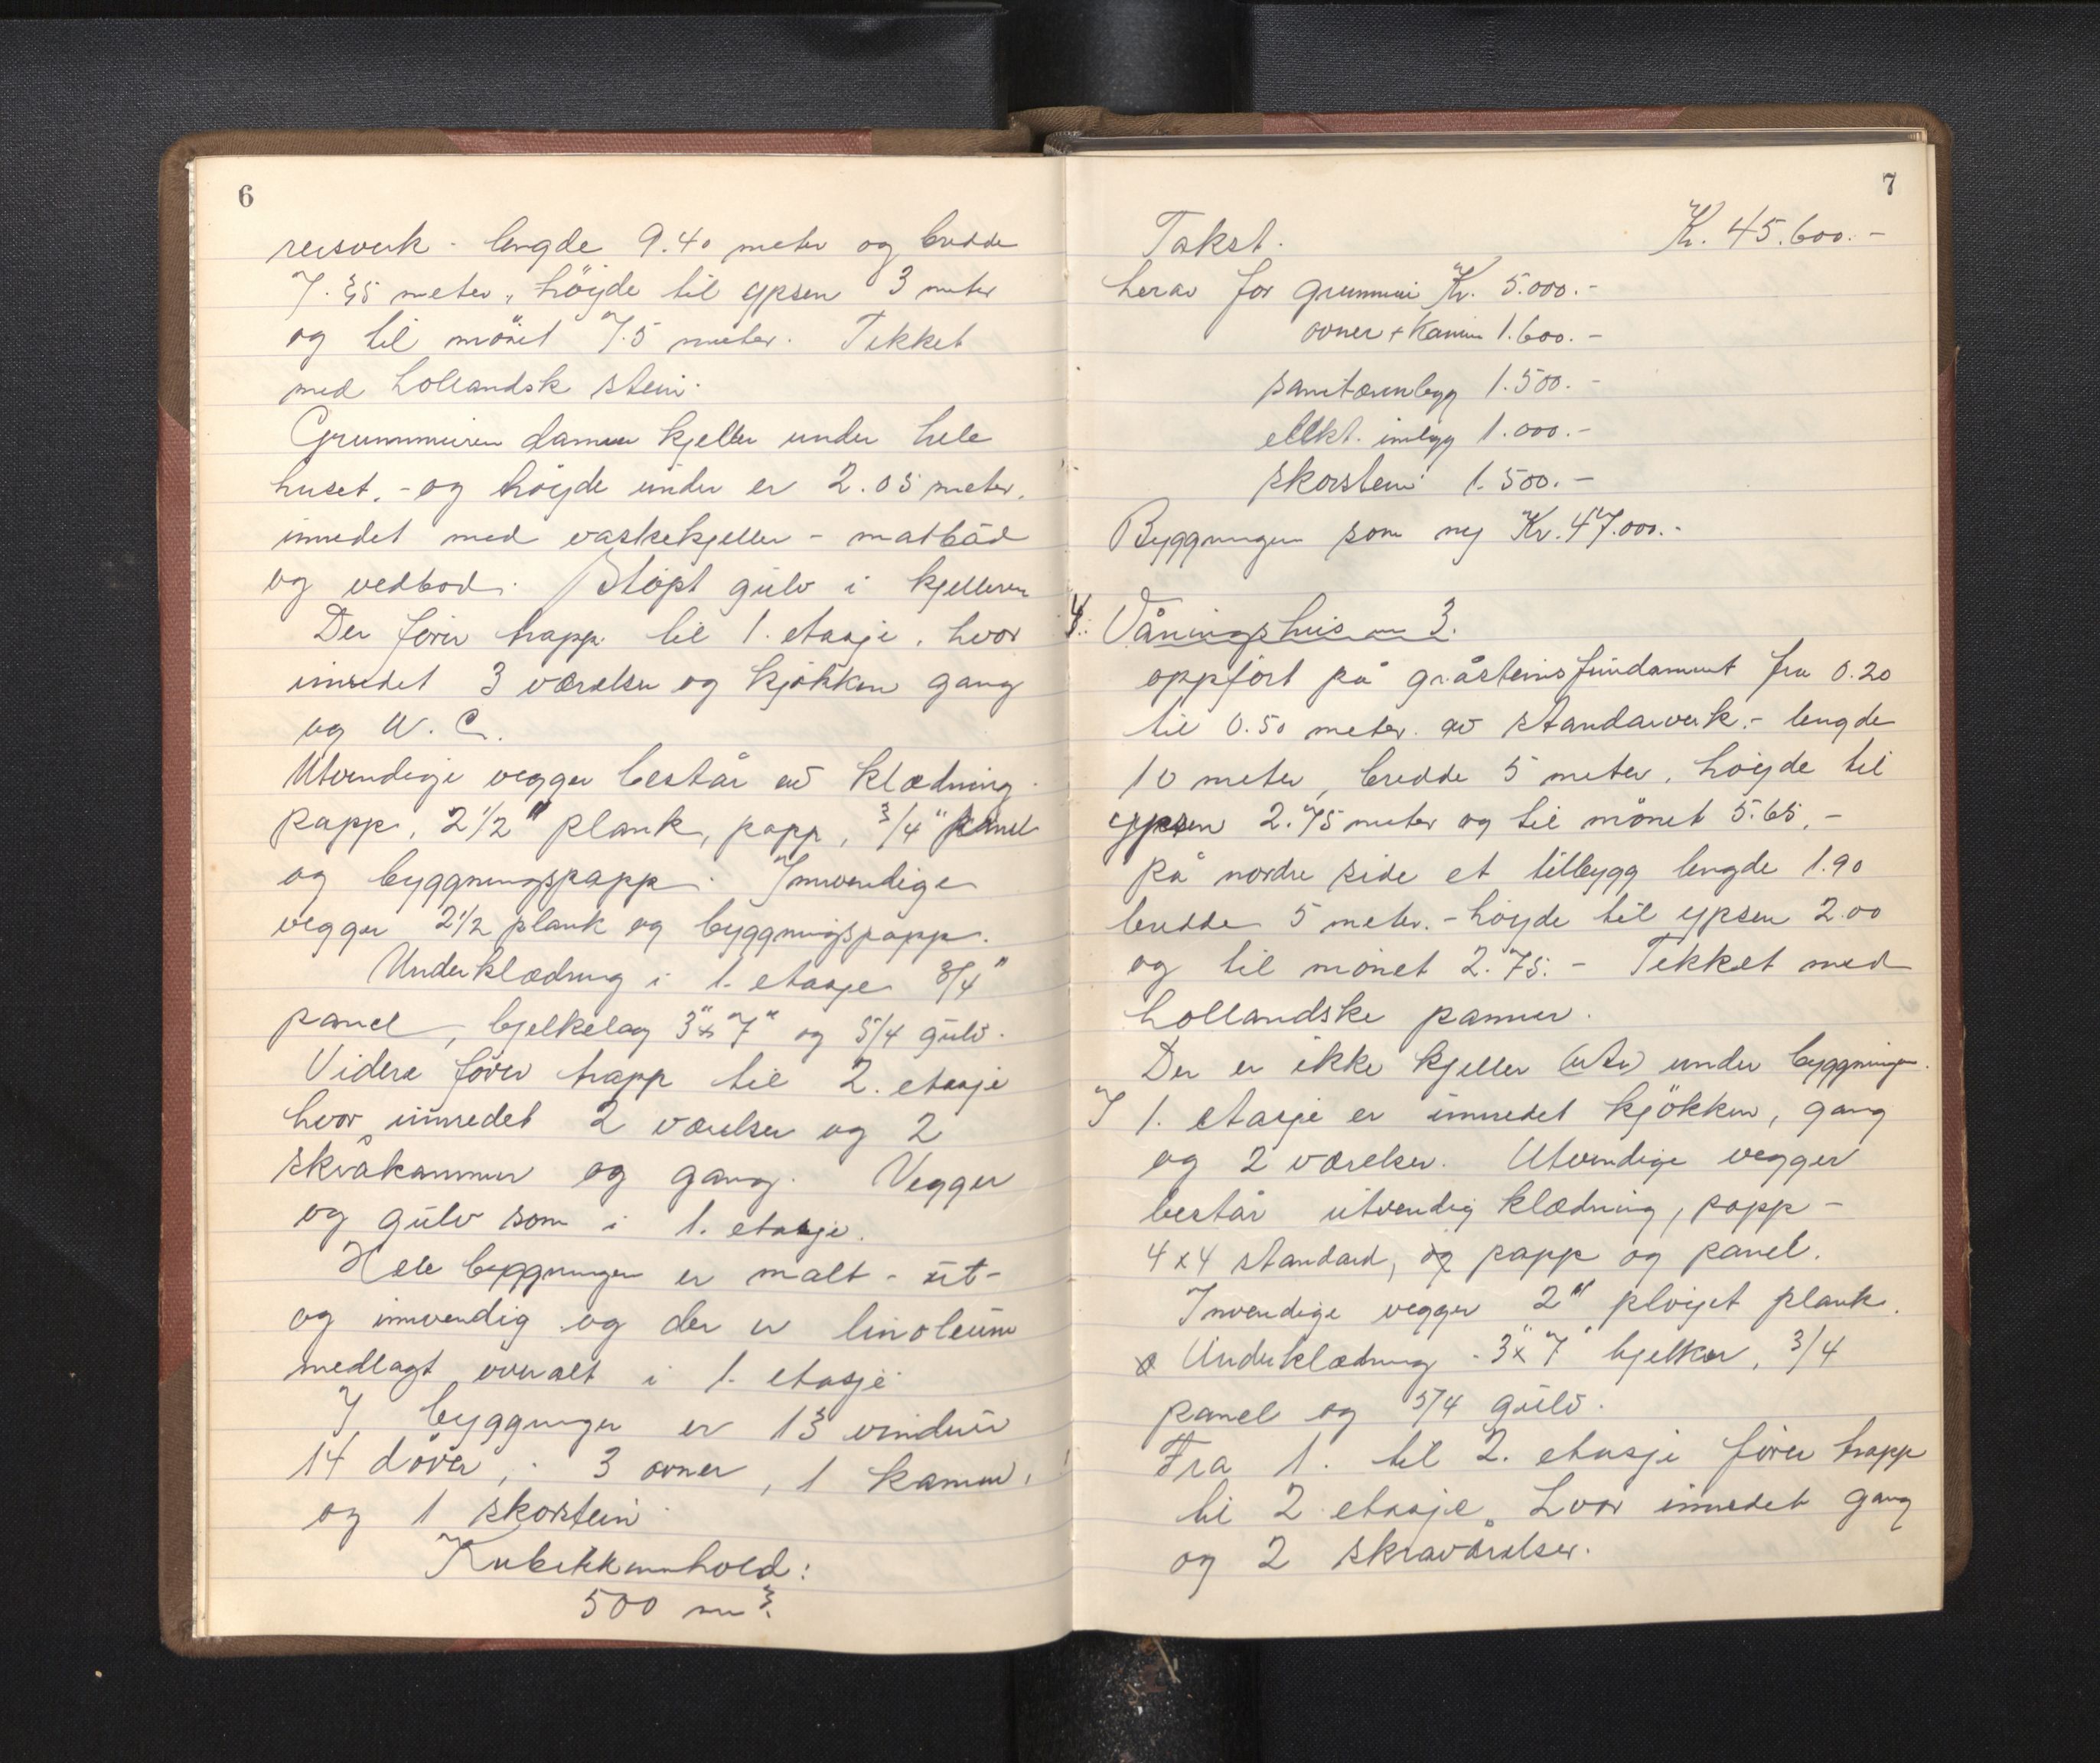 6
reisverk - lengde 9.40 meter og bredde
7.35 meter, höyde til gpsen 3 meter
og til mönet 7.5 meter. Tekket
med hollandsk stein.
Grunnmuren danner kjeller under hele
huset, - og höyde under er 2.05 meter,
innredet med vaskekjeller - matbod
og vedbod. Stöpt gulv i kjelleren
Der förer trapp til 1. etasje, hvor
innredet 3 værelser og kjökken gang
og W.C.
Utvendige vegger består av klædning
papp, 2 1/2" plank, papp, 3/4" panel
og byggningspapp. Innvendige
vegger 2 1/2 plank og byggningspapp.
Underklædning i 1. etasje 3/4"
panel, bjelkelag 3"x7" og 5/4 gulv.
Videre förer trapp til 2. etasje
hvor innredet 2 værelser og 2
skråkammer og gang. Vegger
og gulv som i 1. etasje.
Hele byggningen er malt - ut-
og innvendig og der er linoleum
nedlagt overalt i 1. etasje
I byggningen er 13 vinduer
14 dörer, 3 ovner, 1 kamin,
og 1 skorstein
Kubikkinnhold:
500 m3.
7
Takst. Kr. 45.600.-
herav for grunnmur Kr. 5.000.-
ovner + Kamin 1.600.-
sanitæranlegg 1.500.-
elekt. innlegg 1.000.-
skorstein 1.500.-
Byggningen som ny Kr. 47.000.-
4. Våningshus no 3.
oppfört på gråsteinsfundament fra 0.20
til 0.50 meter. av standarverk. - lengde
10 meter, bredde 5 meter, höyde til
gpsen 2.75 meter og til mönet 5.65. -
På nordre side et tilbygg lengde 1.90
bredde 5 meter. - höyde til gpsen 2.00
og til mönet 2.75. - Tekket med
hollandske panner.
Der er ikke kjeller under byggningen.
I 1. etasje er innredet kjökken, gang
og 2 værelser. Utvendige vegger
består utvendig klædning, papp -
4x4 standard, og papp og panel.
Innvendige vegger 2" plöyet plank.
Underklædning - 3"x7" bjelker, 3/4
panel og 5/4 gulv.
Fra 1. til 2. etasje förer trapp
til 2 etasje, hvor innredet gang
og 2 skraværelser.